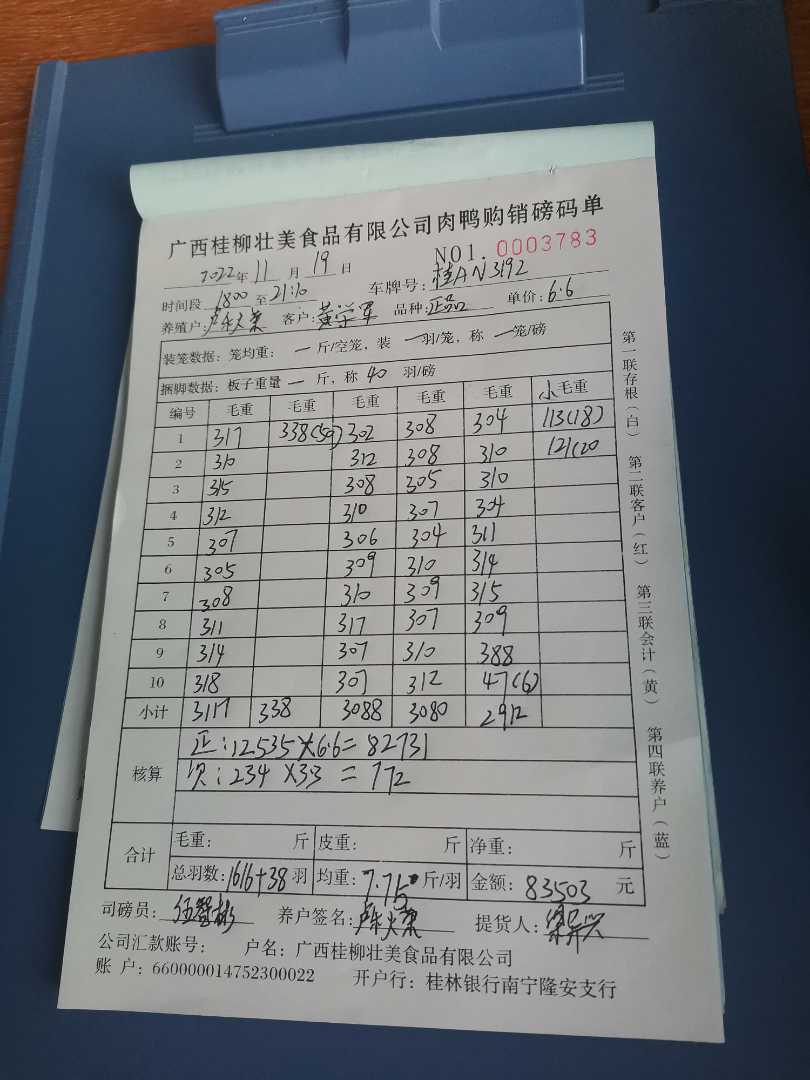 广西桂柳壮美食品有限公司肉鸭购销磅码单
NO1. 0003783
2022年 11 月 19 日 车牌号: 桂AN3192
时间段 1800 至 21:10
养殖户: 客户: 黄学军 品种: 正品 单价: 6.6
装笼数据: 笼均重: 一 斤/空笼, 装 一 羽/笼, 称 一 笼/磅
捆脚数据: 板子重量 一 斤, 称 40 羽/磅
编号 毛重 毛重 毛重 毛重 毛重 小毛重
1 317 338(59) 302 308 304 113(18)
2 310 312 308 310 121(20
3 315 308 305 310
4 312 310 307 304
5 307 306 304 311
6 305 309 310 314
7 308 310 309 315
8 311 317 307 309
9 314 307 310 388
10 318 307 312 47(6)
小计 3117 338 3088 3080 2912
核算
正: 12535×6.6= 82731
次: 234 ×3.3 = 772
合计
毛重: 斤 皮重: 斤 净重: 斤
总羽数: 1616+38 羽 均重: 7.75 斤/羽 金额: 83503 元
司磅员: 养户签名: 提货人:
公司汇款账号: 户名: 广西桂柳壮美食品有限公司
账 户: 660000014752300022 开户行: 桂林银行南宁隆安支行
第一联存根(白) 第二联客户(红) 第三联会计(黄) 第四联养户(蓝)